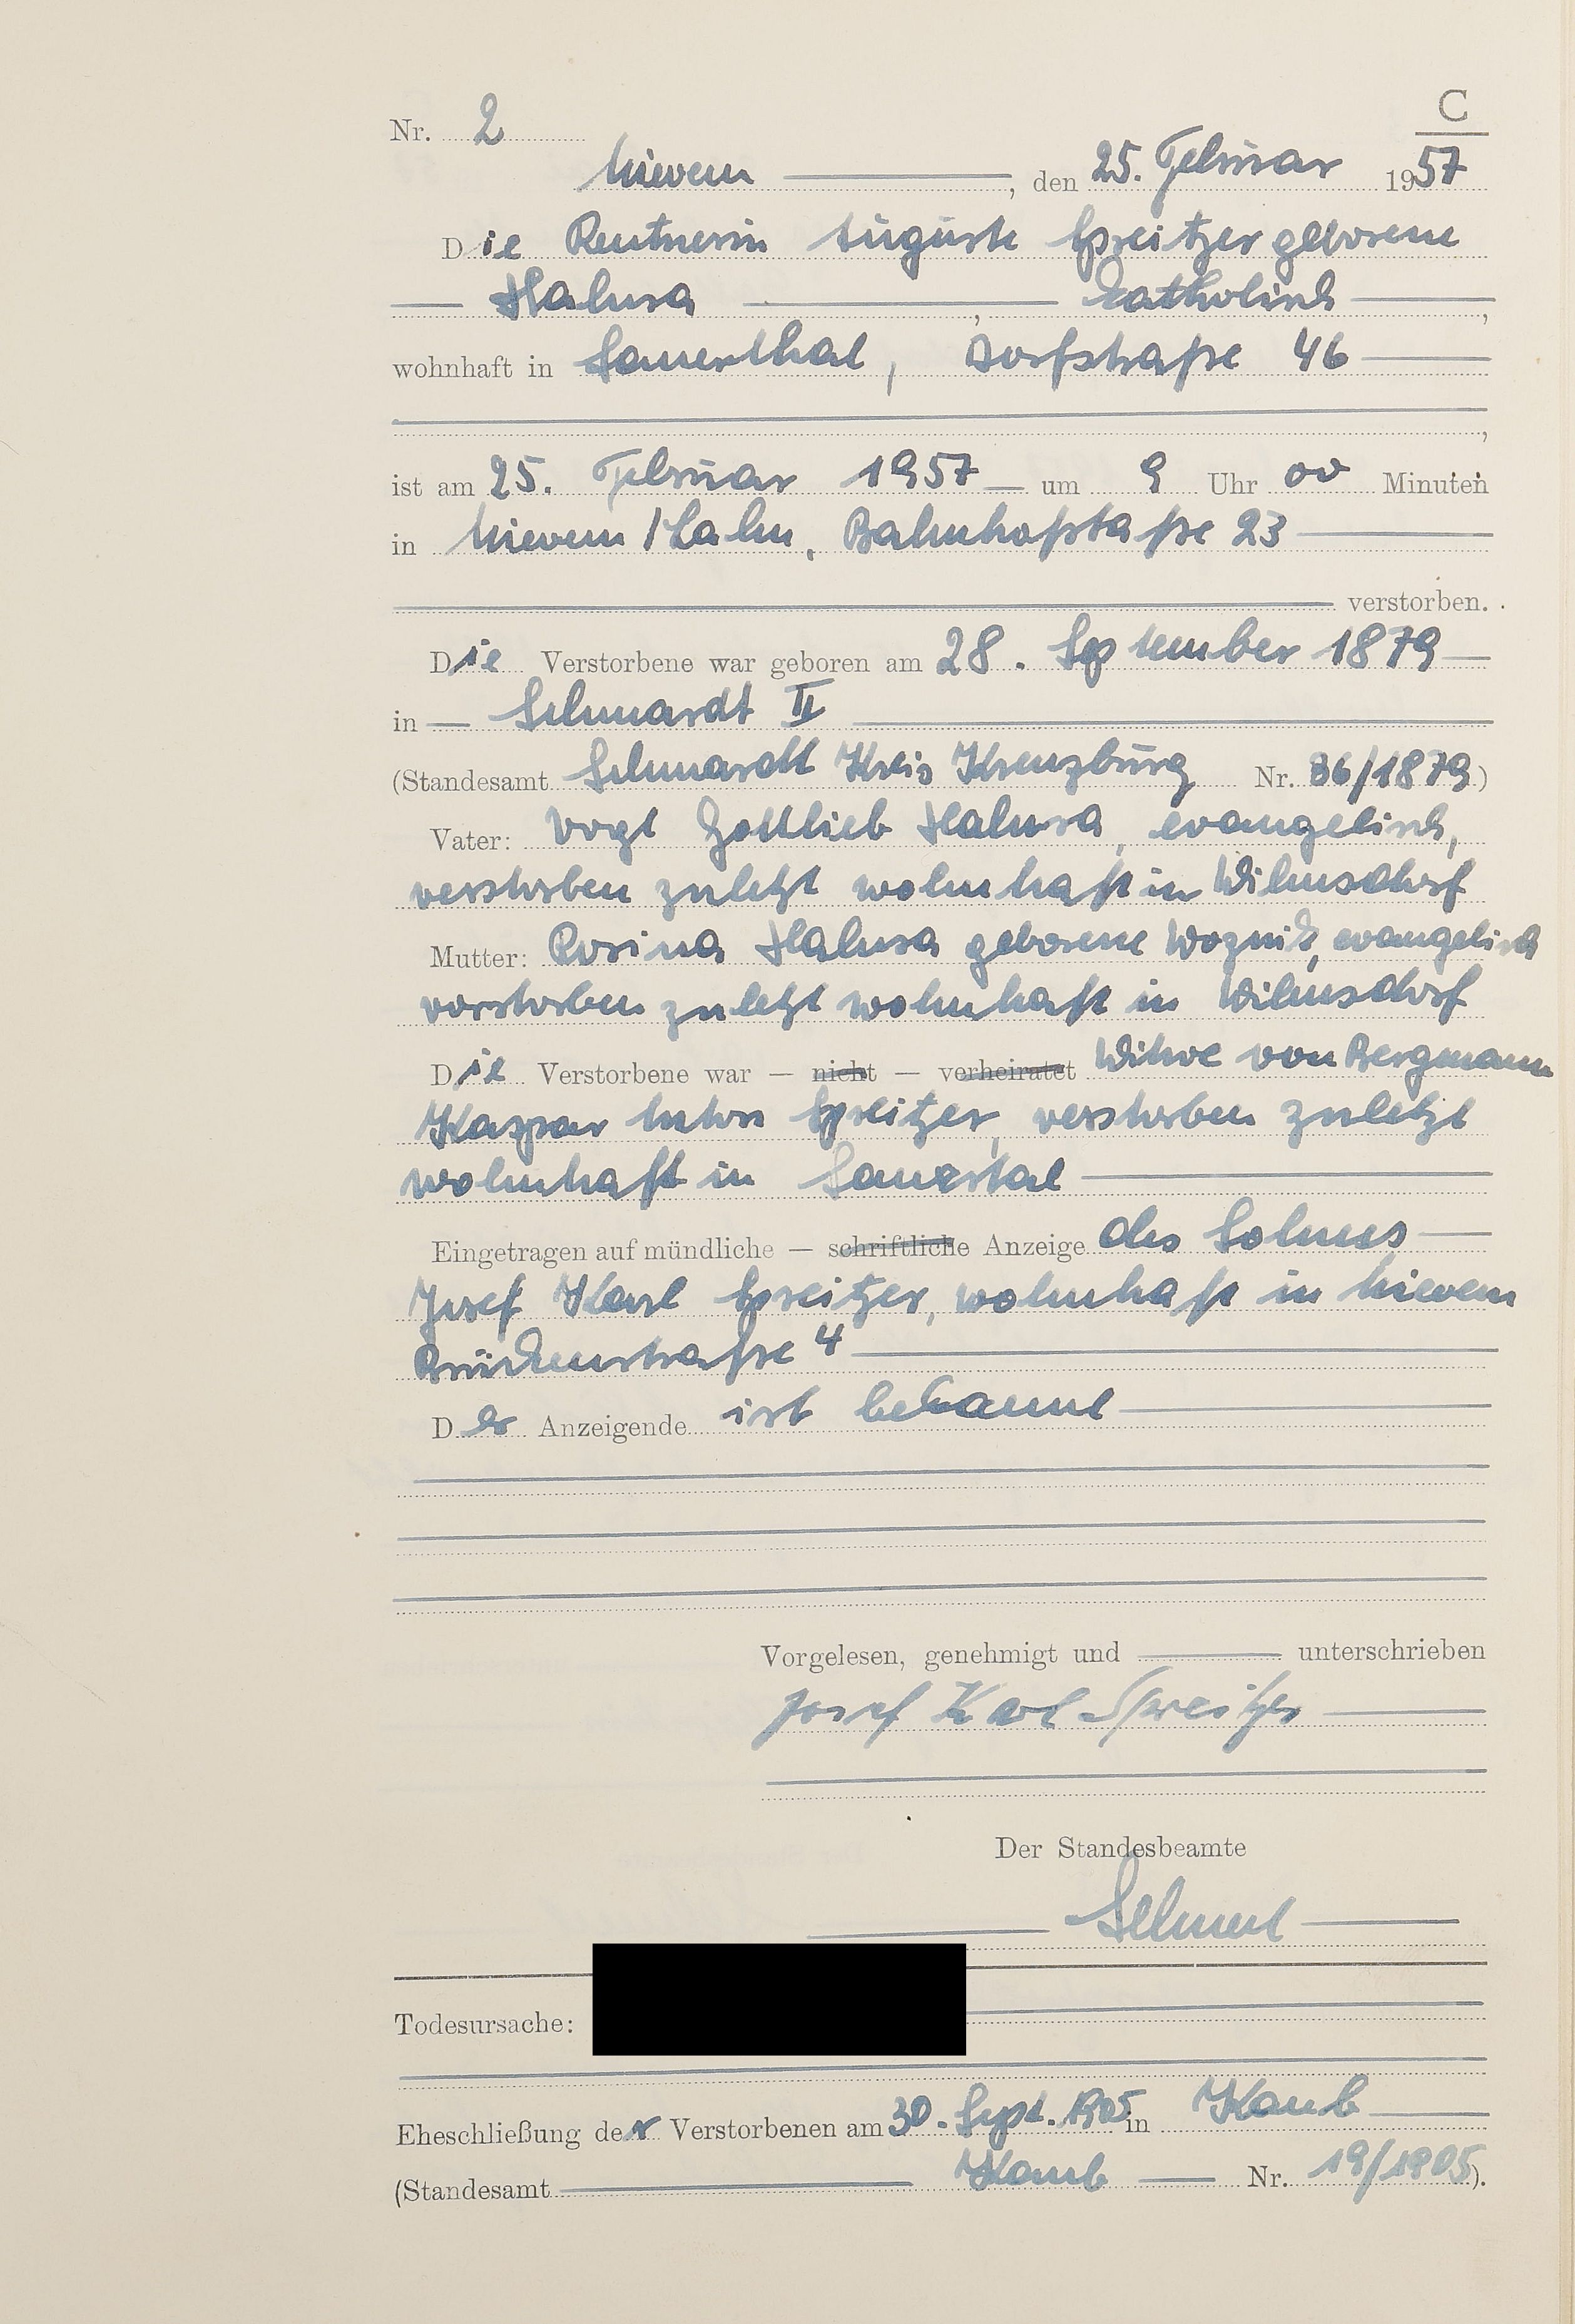 C
Nr. 2
Nievern, den 25. Februar 1957
Die Rentnerin Auguste Spreitzer geborene
Halusa, katholisch,
wohnhaft in Sauerthal, Dorfstraße 46
,
ist am 25. Februar 1957 um 9 Uhr 00 Minuten
in Nievern/Lahn, Bahnhofstaße 23
verstorben.
Die Verstorbene war geboren am 28. September 1879
in Schmardt II
(Standesamt Schmardt Kreis Kreuzburg Nr. 36/1879)
Vater: Vogt Gottlieb Halusa, evangelisch,
verstorben zuletzt wohnhaft in Wilmsdorf
Mutter: Rosina Halusa geborene Woznik, evangelisch
vorstorben zuletzt wohnhaft in Wilmsdorf
Die Verstorbene war — nicht — verheiratet Witwe von Bergmann
Kaspar Anton Spreitzer, verstorben zuletzt
wohnhaft in Sauertal
Eingetragen auf mündliche — schriftliche Anzeige des Sohnes
Josef Karl Spreitzer, wohnhaft in Nievern
Brückenstraße 4
Der Anzeigende ist bekannt
Vorgelesen, genehmigt und unterschrieben
Josef Karl Spreitzer
Der Standesbeamte
Todesursache:
Eheschließung der Verstorbenen am 30. Sept. 1905 in Kaub
(Standesamt Kaub Nr. 19/1905).